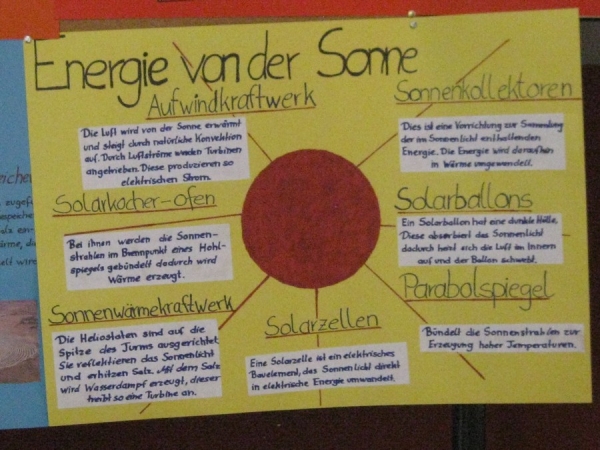 Energie von der Sonne
Aufwindkraftwerk
Die Luft wird von der Sonne erwärmt
und steigt durch natürliche Konvektion
auf. Durch Luftströme werden Turbinen
angetrieben. Diese produzieren so
elektrischen Strom.
Solarkocher-ofen
Bei ihnen werden die Sonnen-
strahlen im Brennpunkt eines Hohl-
spiegels gebündelt dadurch wird
Wärme erzeugt.
Sonnenwärmekraftwerk
Die Heliostaten sind auf die
Spitze des Turms ausgerichtet.
Sie reflektieren das Sonnenlicht
und erhitzen Salz. Mit dem Salz
wird Wasserdampf erzeugt, dieser
treibt so eine Turbine an.
Solarzellen
Eine Solarzelle ist ein elektrisches
Bauelement, das Sonnenlicht direkt
in elektrische Energie umwandelt.
Sonnenkollektoren
Dies ist eine Vorrichtung zur Sammlung
der im Sonnenlicht enthaltenden
Energie. Die Energie wird daraufhin
in Wärme umgewandelt.
Solarballons
Ein Solarballon hat eine dunkle Hülle.
Diese absorbiert das Sonnenlicht
dadurch heizt sich die Luft im Innern
auf und der Ballon schwebt.
Parabolspiegel
Bündelt die Sonnenstrahlen zur
Erzeugung hoher Temperaturen.